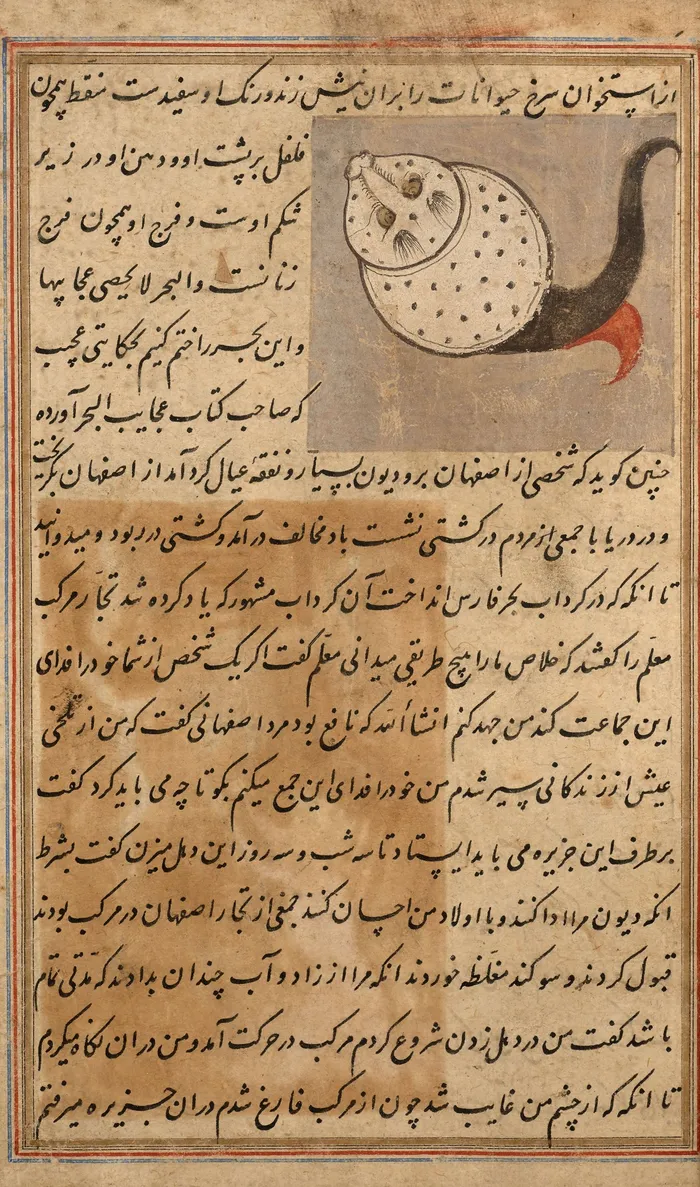 از استخوان سرخ حیوانات را بران نیش زند و رنک او سفیدست منقط همچون
فلفل بر پشت او و دهن او در زیر
شکم اوست و فرج او همچون فرج
زنانست والبحر لا یحصی عجایبها
و این بحر را ختم کنیم بحکایتی عجیب
که صاحب کتاب عجایب البحر آورده
چنین کوید که شخصی از اصفهان برو دیون بسیار و نفقهٔ عیال کرد آمد از اصفهان بکریخت
و در دریا با جمعی از مردم در کشتی نشست باد مخالف در آمد و کشتی در ربود و میدوانید
تا انکه که در کرداب بحر فارس انداخت آن کرداب مشهور که یاد کرده شد تجار مرکب
معلم را کفتند که خلاص ما را هیچ طریقی میدانی معلم کفت اکر یک شخص از شما خود را فدای
این جماعت کند من جهد کنم انشأالله که نافع بود مرد اصفهانی کفت که من از تلخی
عیش از زندکانی سیر شدم من خود را فدای این جمع میکنم بکو تا چه می باید کرد کفت
بر طرف این جزیره می باید ایستاد تا سه شب و سه روز این دهل میزن کفت بشرط
انکه دیون مرا ادا کنند و با اولاد من احسان کنند جمعی از تجار اصفهان در مرکب بودند
قبول کردند و سوکند مغلظه خوردند انکه مرا از زاد و آب چندان بدادند که مدتی تمام
باشد کفت من در دهل زدن شروع کردم مرکب در حرکت آمد و من در ان نکاه میکردم
تا انکه که از چشم من غایب شد چون از مرکب فارغ شدم در ان جزیره میرفتم